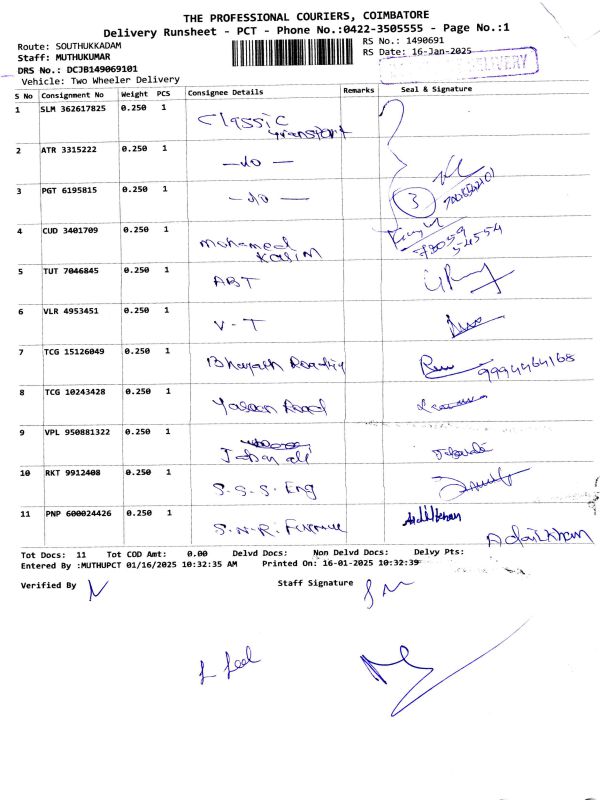 THE PROFESSIONAL COURIERS, COIMBATORE
Delivery Runsheet - PCT - Phone No.:0422-3505555 - Page No.:1
Route: SOUTHUKKADAM
RS No.: 1490691
Staff: MUTHUKUMAR
RS Date: 16-Jan-2025
DRS No.: DCJB149069101
DELIVERY
Vehicle: Two Wheeler Delivery
S No Consignment No Weight PCS Consignee Details Remarks Seal & Signature
1 SLM 362617825 0.250 1 Classic Transport
2 ATR 3315222 0.250 1 -do-
3 PGT 6195815 0.250 1 -do- 3
4 CUD 3401709 0.250 1 Mohamed Kasim
5 TUT 7046845 0.250 1 ABT
6 VLR 4953451 0.250 1 V-T
7 TCG 15126049 0.250 1 Bharath Roading 9994464168
8 TCG 10243428 0.250 1 Road
9 VPL 950881322 0.250 1 Jabar ali
10 RKT 9912408 0.250 1 S.S.S. Eng
11 PNP 600024426 0.250 1 S.N.R. Finance
Adail Khan
Tot Docs: 11 Tot COD Amt: 0.00 Delvd Docs: Non Delvd Docs: Delvy Pts:
Entered By :MUTHUPCT 01/16/2025 10:32:35 AM Printed On: 16-01-2025 10:32:39
Verified By Staff Signature